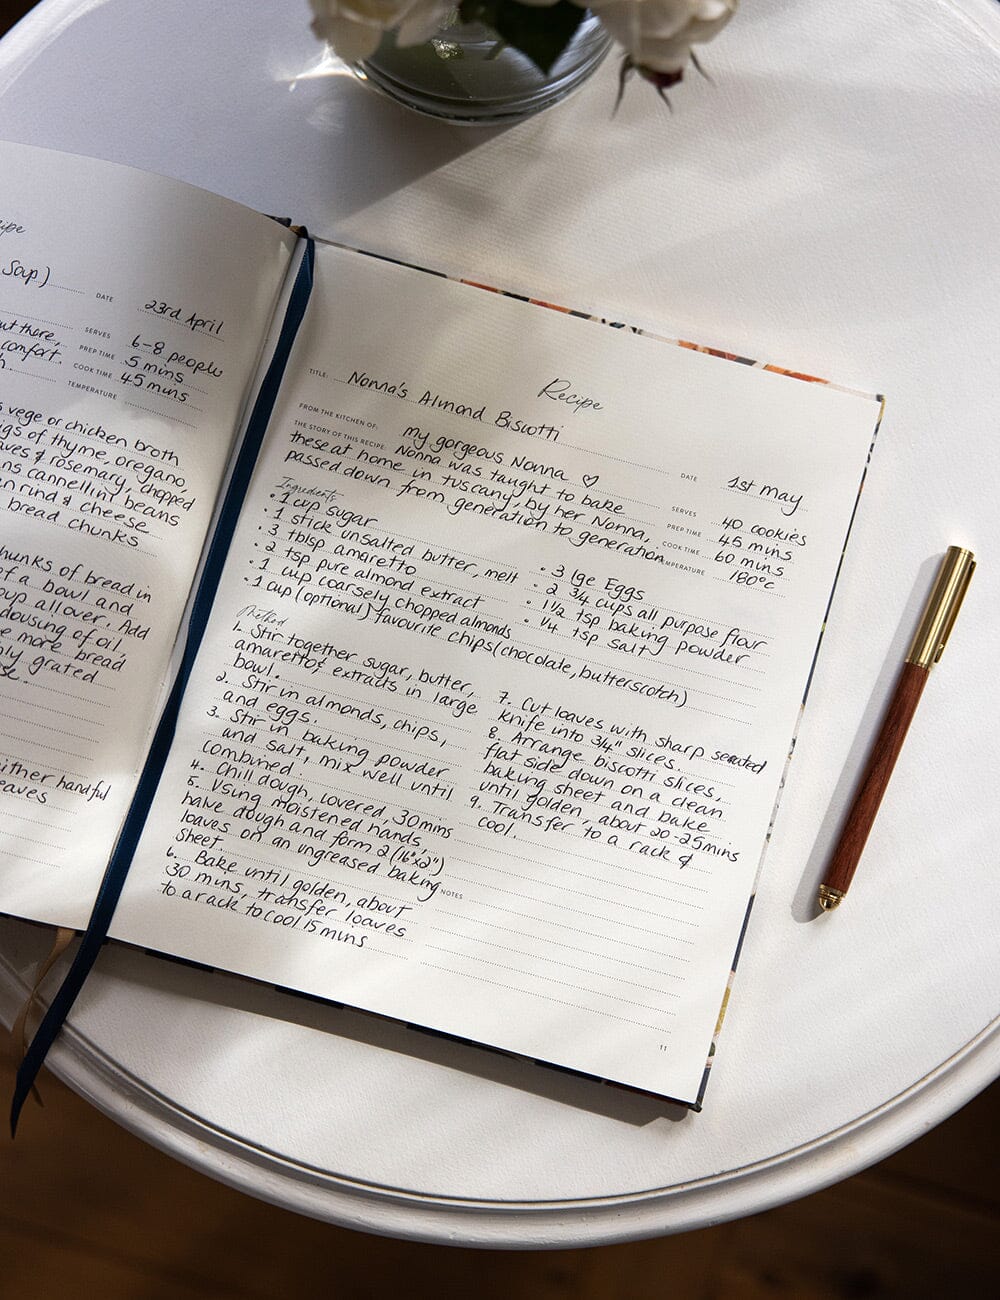 Soup)
DATE 23rd April
out there,
SERVES 6-8 people
comfort.
PREP TIME 5 mins
COOK TIME 45 mins
TEMPERATURE
vege or chicken broth
of thyme, oregano,
& rosemary, chopped
cannellini beans
rind & cheese
bread chunks
chunks of bread in
of a bowl and
all over. Add
dousing of oil,
more bread
grated
either handful
Recipe
TITLE: Nonna's Almond Biscotti
DATE 1st May
FROM THE KITCHEN OF: my gorgeous Nonna ♡
SERVES 40 cookies
THE STORY OF THIS RECIPE: Nonna was taught to bake
PREP TIME 45 mins
these at home in tuscany, by her Nonna,
COOK TIME 60 mins
passed down from generation to generation.
TEMPERATURE 180°c
Ingredients
• 1 cup sugar
• 1 stick unsalted butter, melt
• 3 tblsp amaretto
• 2 tsp pure almond extract
• 1 cup coarsely chopped almonds
• 1 cup (optional) favourite chips (chocolate, butterscotch)
• 3 lge Eggs
• 2 3/4 cups all purpose flour
• 1 1/2 tsp baking powder
• 1/4 tsp salt
Method
1. Stir together sugar, butter,
amaretto & extracts in large
bowl.
2. Stir in almonds, chips,
and eggs.
3. Stir in baking powder
and salt, mix well until
combined.
4. Chill dough, covered, 30mins
5. Using moistened hands,
halve dough and form 2 (16"x2")
loaves on an ungreased baking
sheet
6. Bake until golden, about
30 mins, transfer loaves
to a rack to cool 15 mins
7. Cut loaves with sharp serrated
knife into 3/4" slices.
8. Arrange biscotti slices,
flat side down on a clean
baking sheet and bake
until golden, about 20-25mins
9. Transfer to a rack &
cool.
NOTES
11